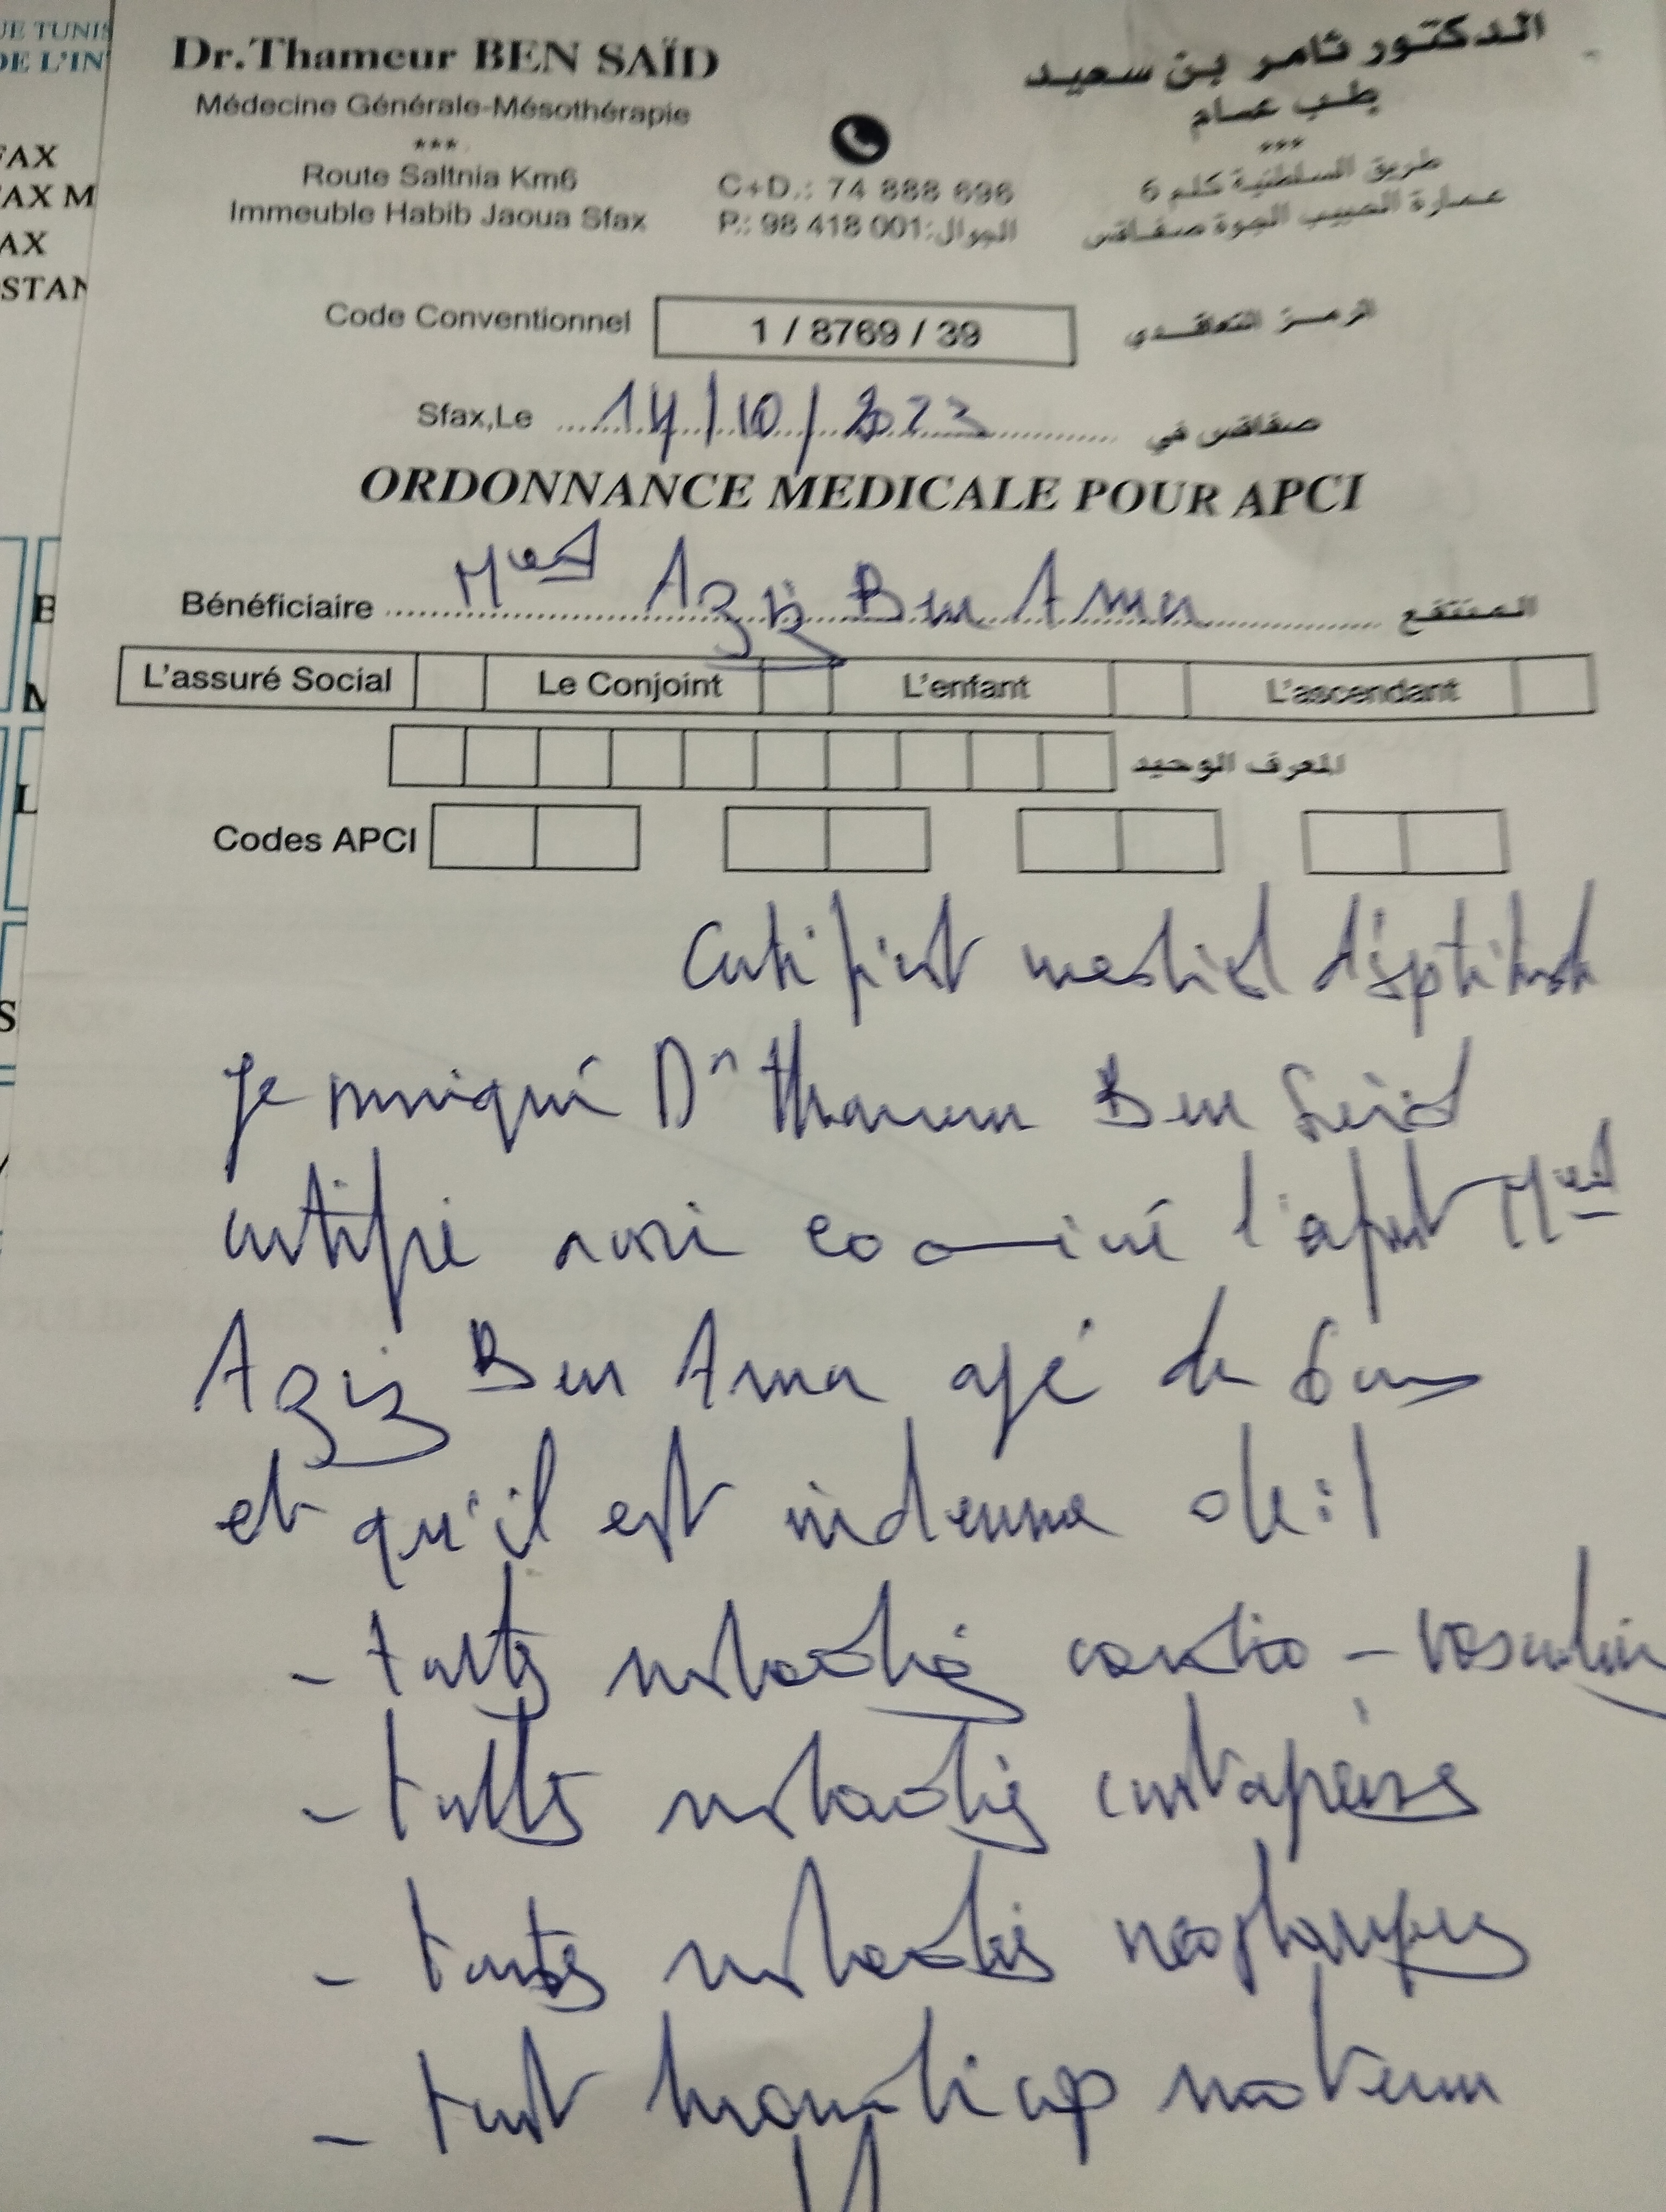 UE TUNIS
DE L'IN
FAX
FAX M
AX
STAN
Dr.Thameur BEN SAÏD
Médecine Générale-Mésothérapie
***
Route Saltnia Km6
Immeuble Habib Jaoua Sfax
C+D.: 74 888 696
P.: 98 418 001:الجوال
الدكتور ثامر بن سعيد
طب عام
***
طريق السلطنية كلم 6
عمارة الحبيب الجوة صفاقس
Code Conventionnel 1 / 8769 / 39 الرمز التعاقدي
Sfax,Le 14/10/2023 صفاقس في
ORDONNANCE MEDICALE POUR APCI
Bénéficiaire Aziz Ben Amer المنتفع
L'assuré Social Le Conjoint L'enfant L'ascendant
المعرف الوحيد
Codes APCI
Certificat medical d'aptitude
Je soussigné Dr Thameur Ben Said
certifie avoir examiné l'enfant
Aziz Ben Amer agé de 6 ans
et qu'il est indemne de :
- toutes maladies cardio-vasculaires
- toutes maladies contagieuses
- toutes maladies néoplasiques
- tout handicap moteur